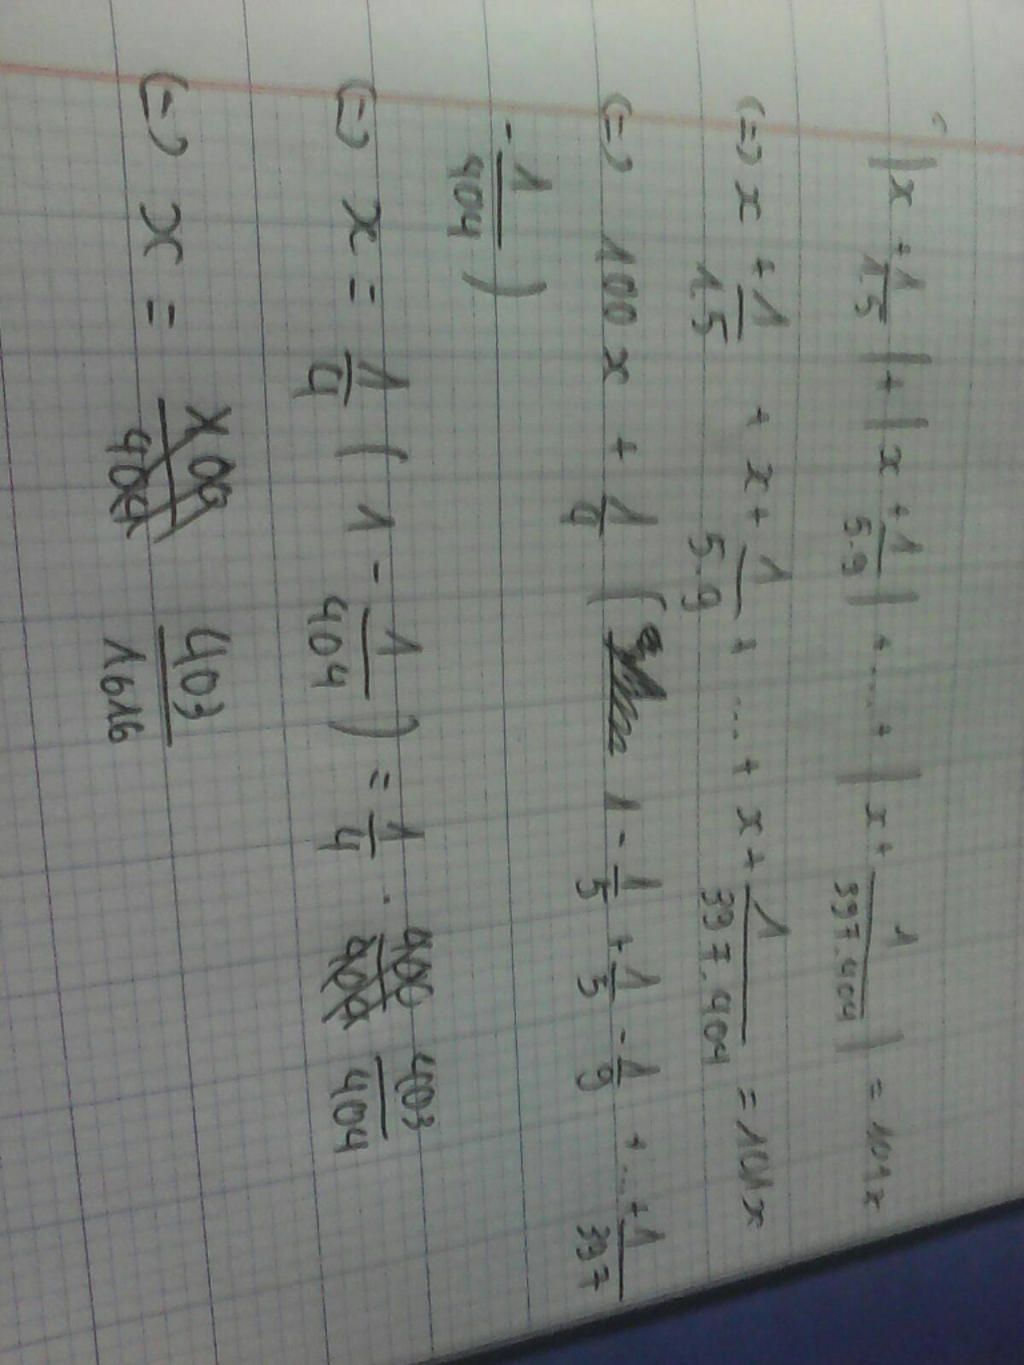 |x + 1/1.5| + |x + 1/5.9| + .... + |x + 1/397.404| = 101x
(=) x + 1/1.5 + x + 1/5.9 + ... + x + 1/397.404 = 101x
(=) 100x + 1/4 ( 1 - 1/5 + 1/5 - 1/9 + ... + 1/397
- 1/404 )
(=) x = 1/4 ( 1 - 1/404 ) = 1/4 . 403/404
(=) x = 403/1616